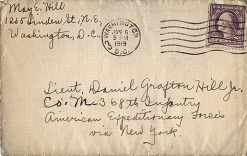 May E. Hill
1200 Linden St., N.E.
Washington, D.C.
WASHINGTON
5 PM
1919
D.C.
Lieut. Daniel Grafton Hill Jr.
Co. M - 368th Infantry
American Expeditionary Forces
via New York.